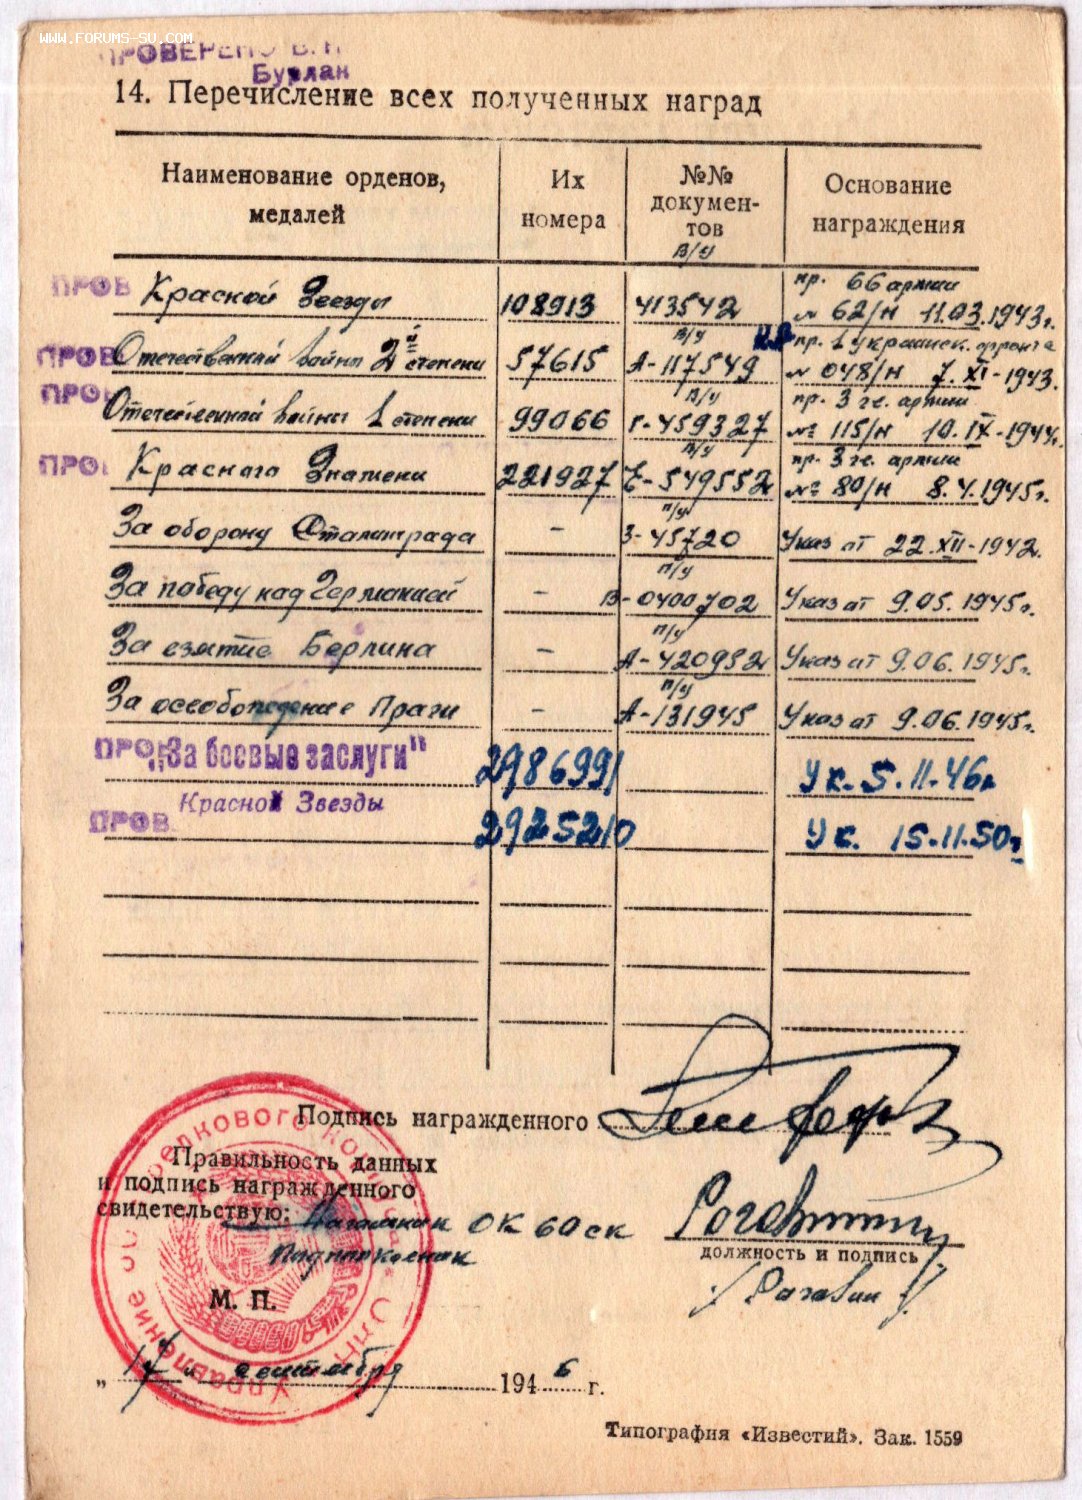 WWW.FORUMS-SU.COM
ПРОВЕРЕНО В.
Бурлан
14. Перечисление всех полученных наград
Наименование орденов, медалей
Их номера
№№ докумен-тов
Основание награждения
в/у пр. 66 армии
ПРОВ Красной Звезды 108913 413542 № 62/н 11.03.1943г.
в/у пр. 1 Украинск. фронта
ПРОВ Отечественной войны 2й степени 57615 А-117549 № 048/н 7.XI-1943.
ПРОВ в/у пр. 3 гв. армии
Отечественной войны 1 степени 99066 Г-459327 № 115/н 10.IX-1944г.
в/у пр. 3 гв. армии
ПРОВ Красного Знамени 221927 Е-549552 № 80/н 8.4.1945г.
п/у
За оборону Сталинграда - З-45720 Указ от 22.XII-1942.
п/у
За победу над Германией - В-0400702 Указ от 9.05.1945г.
п/у
За взятие Берлина - А-420952 Указ от 9.06.1945г.
п/у
За освобождение Праги - А-131945 Указ от 9.06.1945г.
ПРОВ "За боевые заслуги" 2986991 Ук. 5.11.46г
ПРОВ Красной Звезды 2925210 Ук. 15.11.50г.
Подпись награжденного
Правильность данных
и подпись награжденного
свидетельствую: Начальник ОК 60 ск
Подполковник
должность и подпись
/Рогавин/
М. П.
Управление стрелкового
„17" сентября 1946 г.
Типография «Известий». Зак. 1559